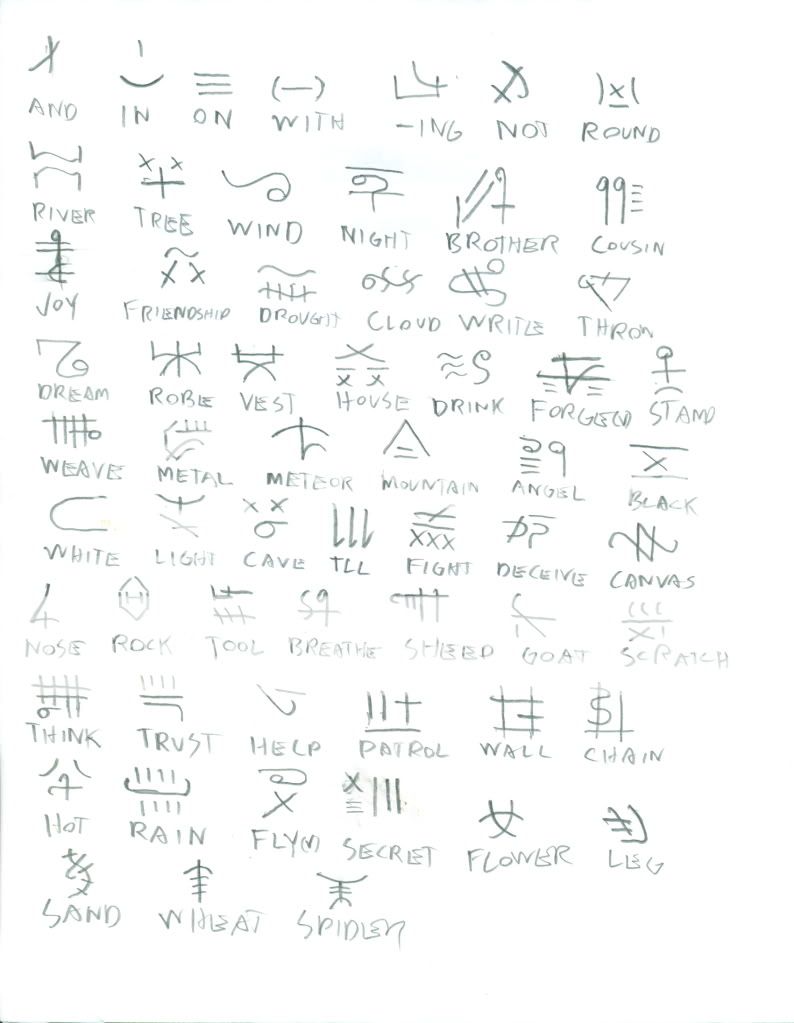 AND IN ON WITH -ING NOT ROUND
RIVER TREE WIND NIGHT BROTHER COUSIN
JOY FRIENDSHIP DROUGHT CLOUD WRITE THRON
DREAM ROBE VEST HOUSE DRINK FORGE(V) STAND
WEAVE METAL METEOR MOUNTAIN ANGEL BLACK
WHITE LIGHT CAVE TLL FIGHT DECEIVE CANVAS
NOSE ROCK TOOL BREATHE SHEEP GOAT SCRATCH
THINK TRUST HELP PATROL WALL CHAIN
HOT RAIN FLY(V) SECRET FLOWER LEG
SAND WHEAT SPIDER